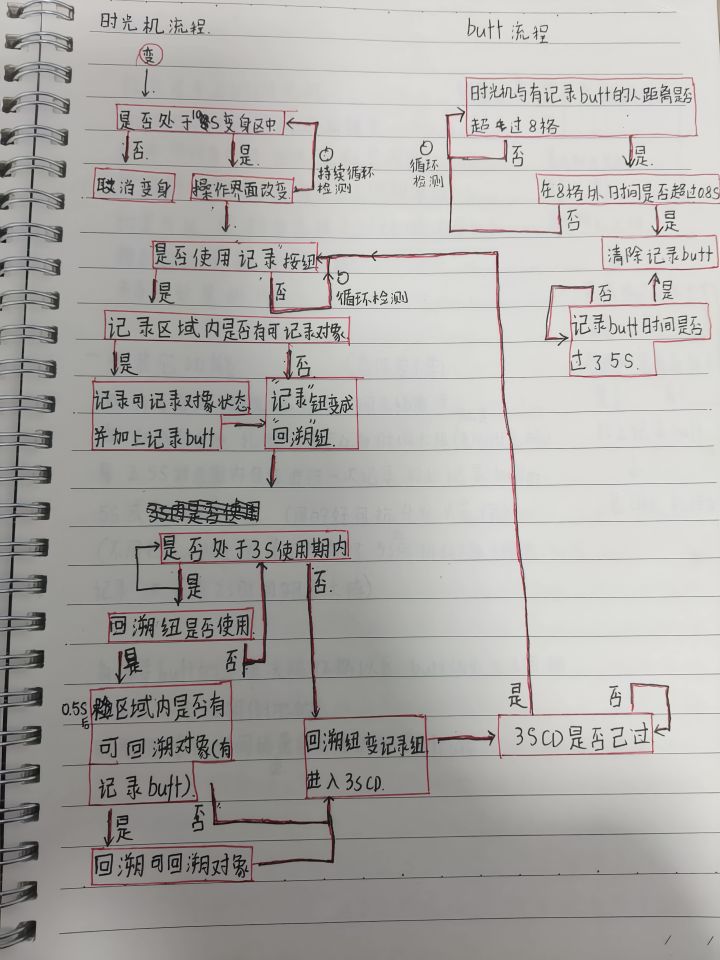 时光机流程.
变
是否处于10S变身区中.
否.
是.
①
持续循环
检测
取消变身
操作界面改变.
是否使用"记录"按纽
是
否
①
循环检测
记录区域内是否有可记录对象.
是
否
记录可记录对象状态
并加上记录butt
"记录"钮变成
回溯纽.
是否处于3S使用期内
是
否.
回溯纽是否使用
是
否
0.5S
后
区域内是否有
可回溯对象(有
记录butt).
是
否
回溯可回溯对象
回溯纽变记录纽
进入3SCD.
是
否
3SCD是否已过
butt流程
时光机与有记录butt的人距离是否
超过8格
①
循环
检测
否
是.
在8格外日时间是否超过0.8S
否
是
清除记录butt
否
是
记录butt日时间是否
过35S.